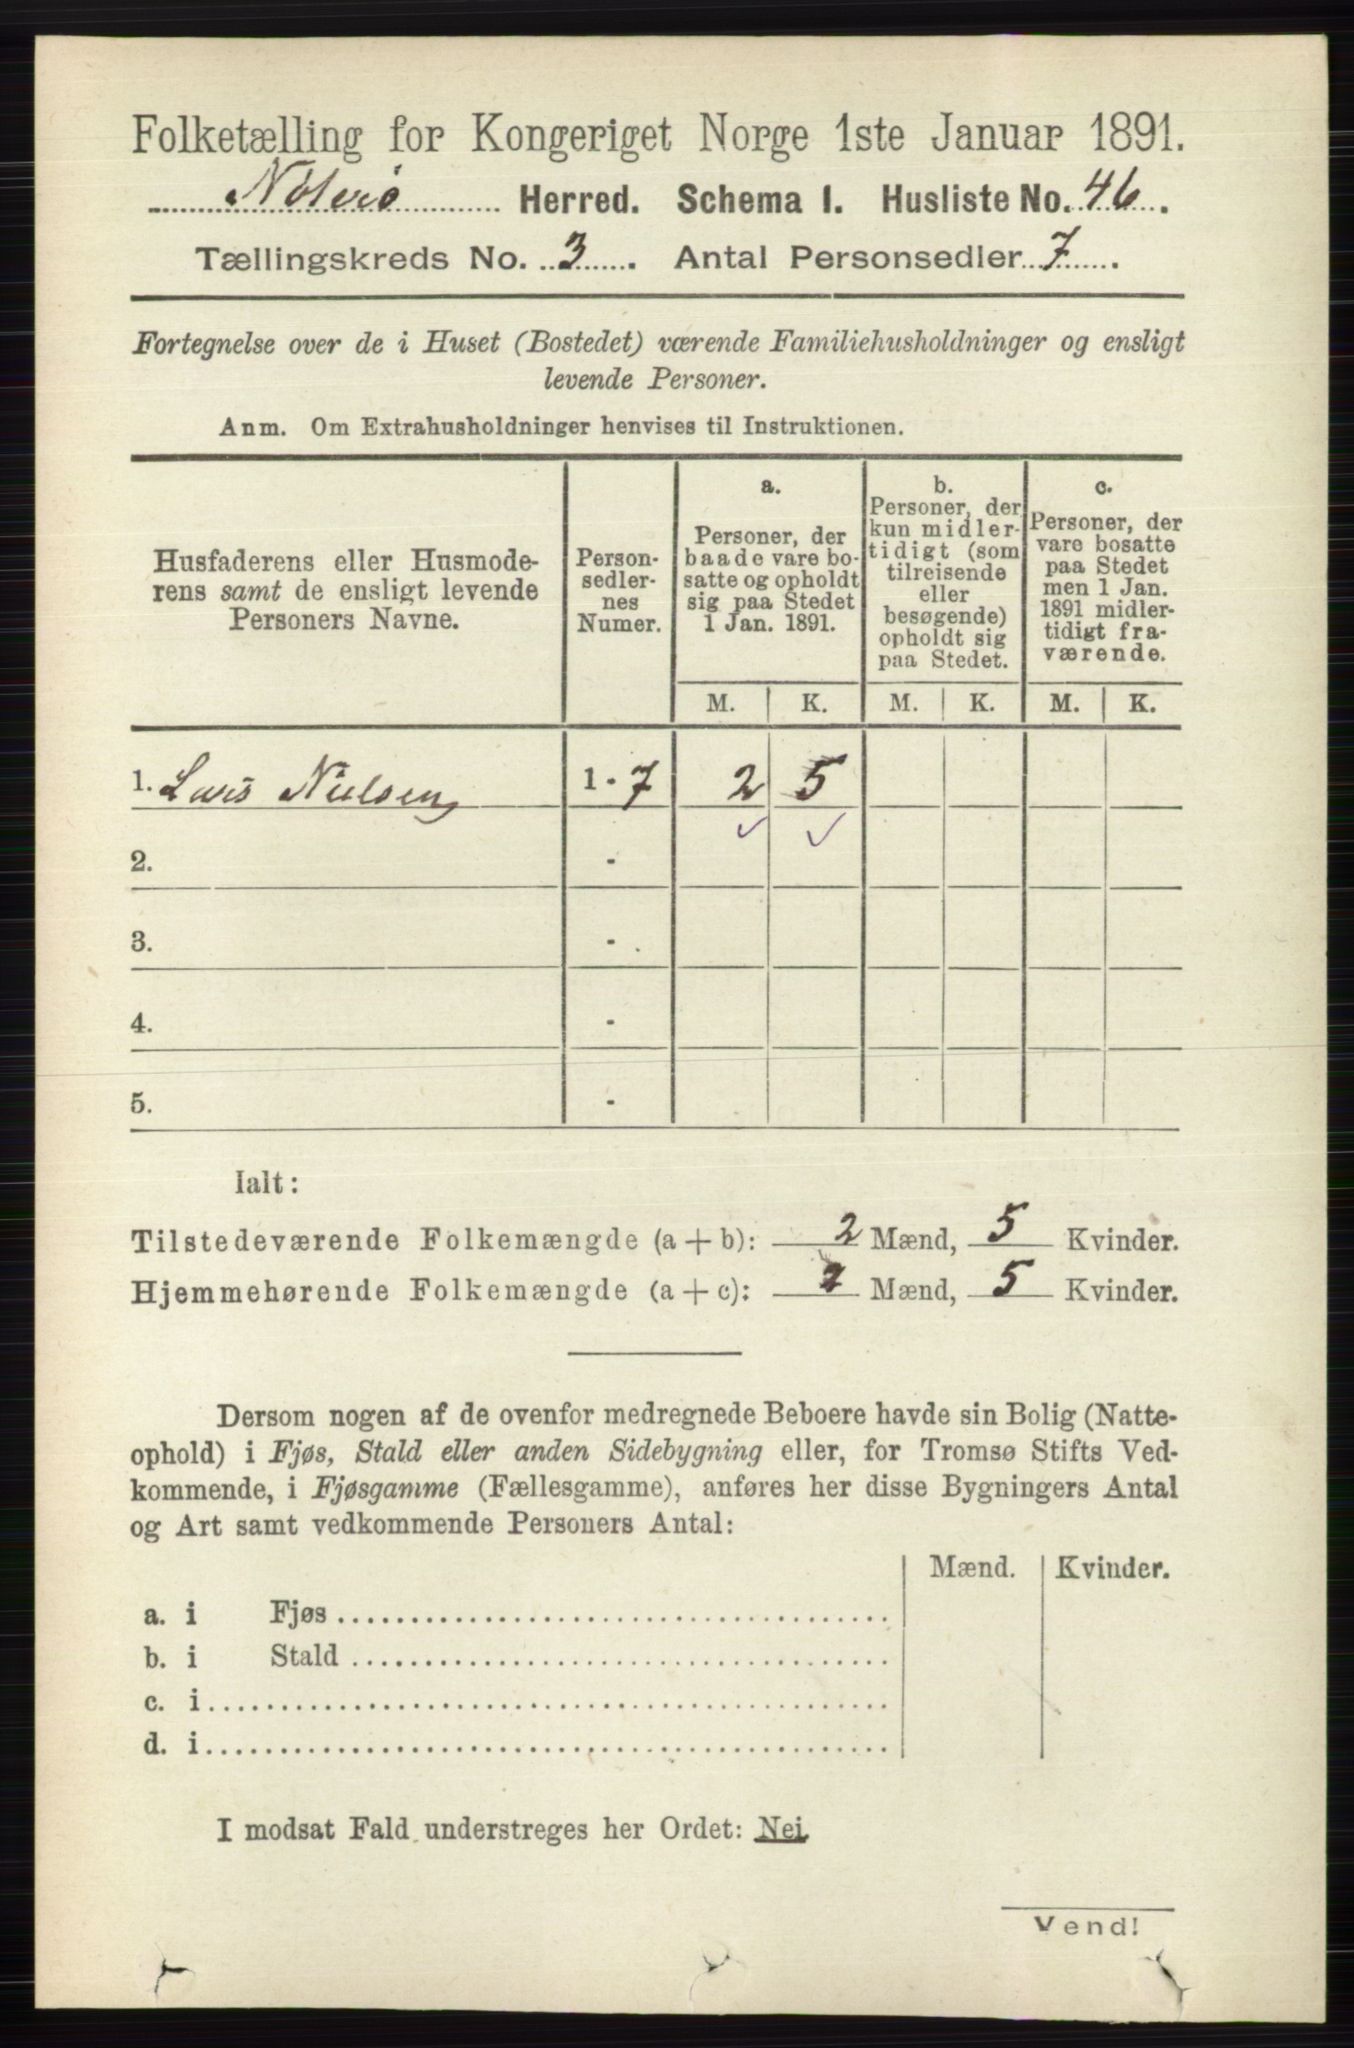 Folketælling for Kongeriget Norge 1ste Januar 1891.
Nøterø Herred. Schema I. Husliste No. 46.
Tællingskreds No. 3. Antal Personsedler 7.
Fortegnelse over de i Huset (Bostedet) værende Familiehusholdninger og ensligt
levende Personer.
Anm. Om Extrahusholdninger henvises til Instruktionen.
Husfaderens eller Husmode-
rens samt de ensligt levende
Personers Navne.
Person-
sedler-
nes
Numer.
a.
Personer, der
baade vare bo-
satte og opholdt
sig paa Stedet
1 Jan. 1891.
b.
Personer, der
kun midler-
tidigt (som
tilreisende
eller
besøgende)
opholdt sig
paa Stedet.
c.
Personer, der
vare bosatte
paa Stedet
men 1 Jan.
1891 midler-
tidigt fra-
værende.
M. K. M. K. M. K.
1. Lars Nielsen 1 - 7 2 5
2. -
3. -
4. -
5. -
Ialt:
Tilstedeværende Folkemængde (a + b): 2 Mænd, 5 Kvinder.
Hjemmehørende Folkemængde (a + c): 2 Mænd, 5 Kvinder.
Dersom nogen af de ovenfor medregnede Beboere havde sin Bolig (Natte-
ophold) i Fjøs, Stald eller anden Sidebygning eller, for Tromsø Stifts Ved-
kommende, i Fjøsgamme (Fællesgamme), anføres her disse Bygningers Antal
og Art samt vedkommende Personers Antal:
Mænd. Kvinder.
a. i Fjøs
b. i Stald
c. i
d. i
I modsat Fald understreges her Ordet: Nei.
Vend!